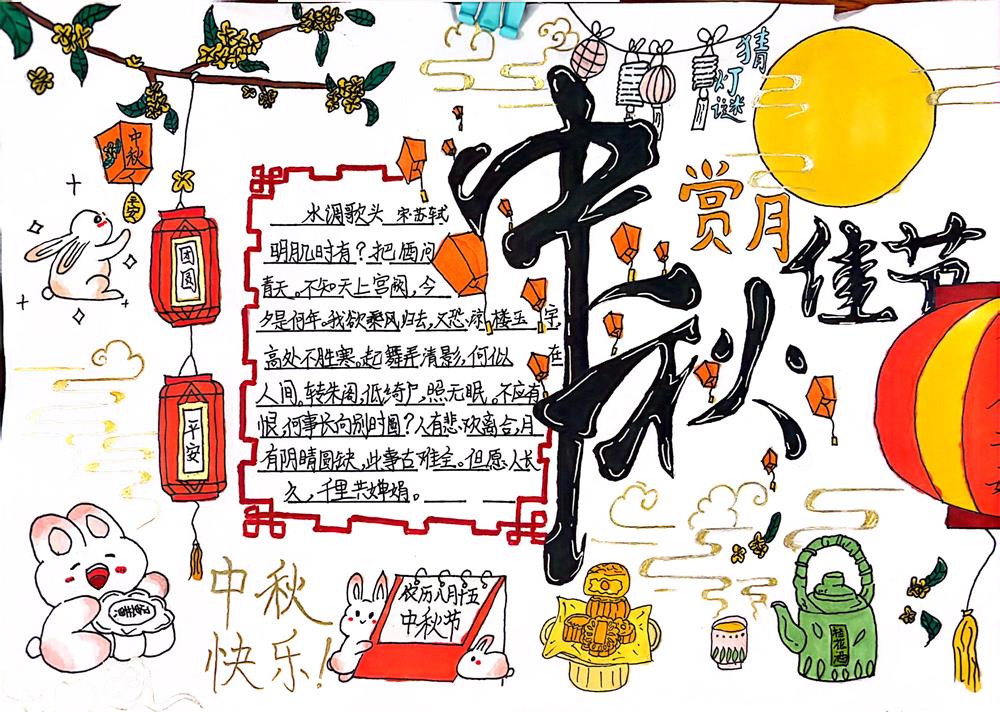 猜
灯
谜
中秋
平安
团圆
平安
中秋
赏月
佳节
水调歌头 宋·苏轼
明月几时有？把酒问
青天。不知天上宫阙，今
夕是何年。我欲乘风归去，又恐琼楼玉宇，
高处不胜寒。起舞弄清影，何似在
人间。转朱阁，低绮户，照无眠。不应有
恨，何事长向别时圆？人有悲欢离合，月
有阴晴圆缺，此事古难全。但愿人长
久，千里共婵娟。
中秋
快乐！
农历八月十五
中秋节
桂花酒